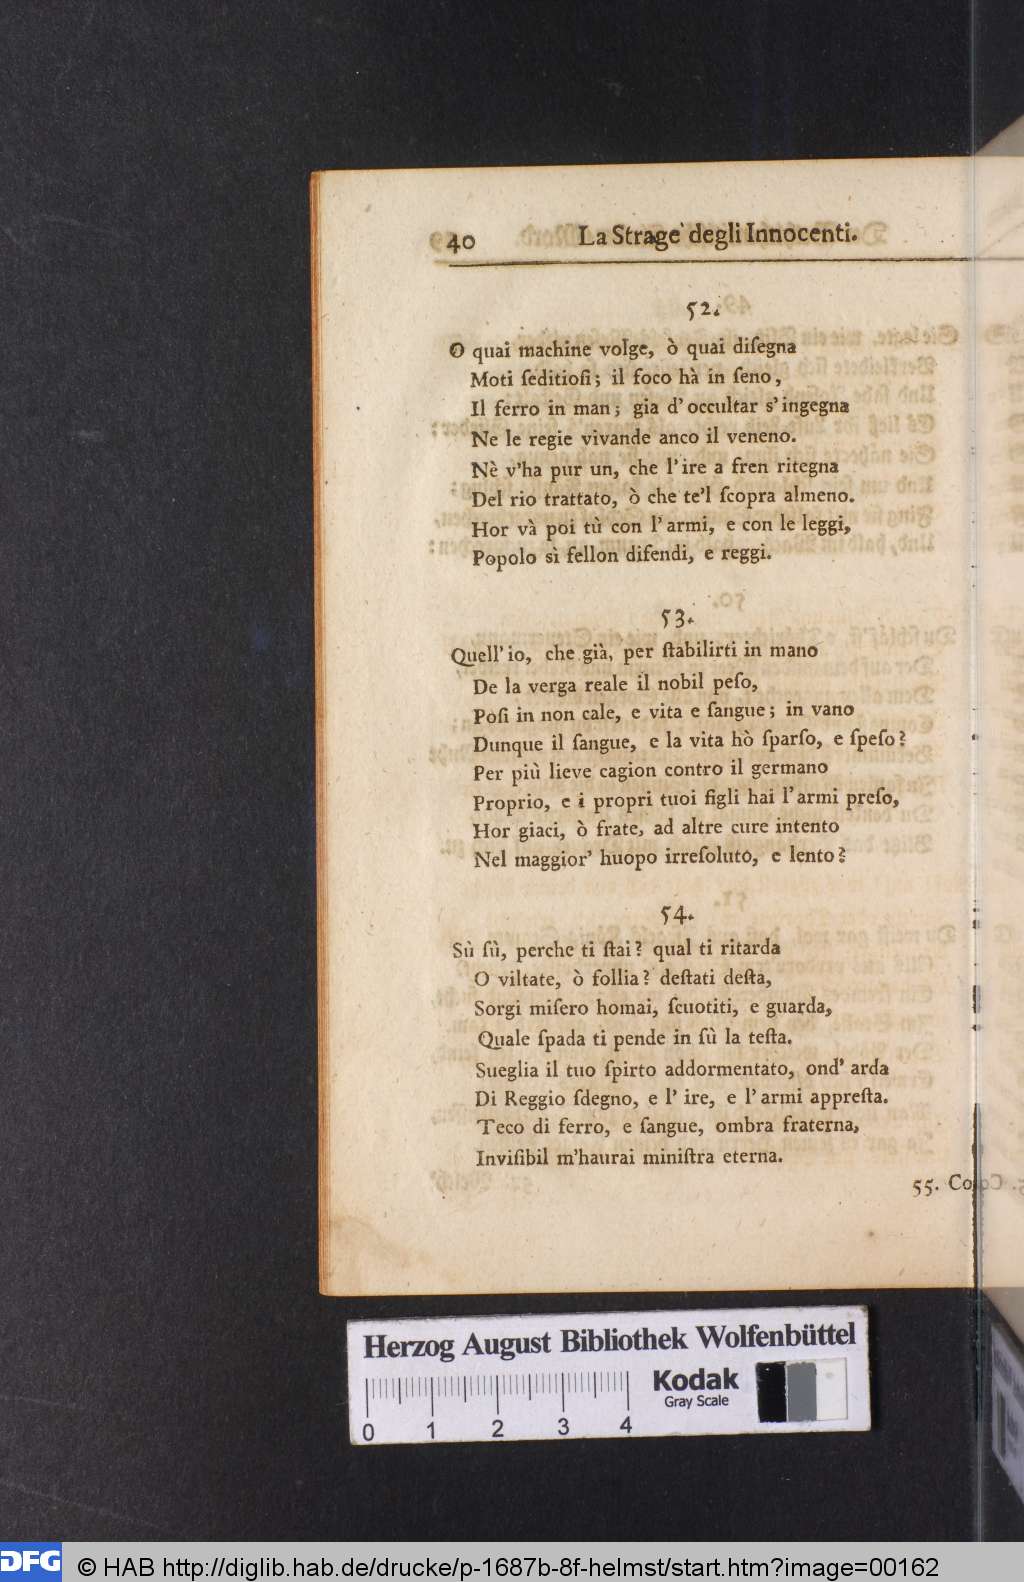 40 La Strage degli Innocenti.
52.
O quai machine volge, ò quai diſegna
Moti ſeditioſi; il foco hà in ſeno,
Il ferro in man; gia d'occultar s'ingegna
Ne le regie vivande anco il veneno.
Nè v'ha pur un, che l'ire a fren ritegna
Del rio trattato, ò che te'l ſcopra almeno.
Hor và poi tù con l'armi, e con le leggi,
Popolo sì fellon difendi, e reggi.
53.
Quell'io, che già, per ſtabilirti in mano
De la verga reale il nobil peſo,
Poſi in non cale, e vita e ſangue; in vano
Dunque il ſangue, e la vita hò ſparſo, e ſpeſo?
Per più lieve cagion contro il germano
Proprio, e i propri tuoi figli hai l'armi preſo,
Hor giaci, ò frate, ad altre cure intento
Nel maggior' huopo irreſoluto, e lento?
54.
Sù ſù, perche ti ſtai? qual ti ritarda
O viltate, ò follia? deſtati deſta,
Sorgi miſero homai, ſcuotiti, e guarda,
Quale ſpada ti pende in ſù la teſta.
Sueglia il tuo ſpirto addormentato, ond' arda
Di Reggio ſdegno, e l' ire, e l'armi appreſta.
Teco di ferro, e ſangue, ombra fraterna,
Inviſibil m'haurai miniſtra eterna.
55. Co
Herzog August Bibliothek Wolfenbüttel
Kodak
Gray Scale
0 1 2 3 4
DFG © HAB http://diglib.hab.de/drucke/p-1687b-8f-helmst/start.htm?image=00162